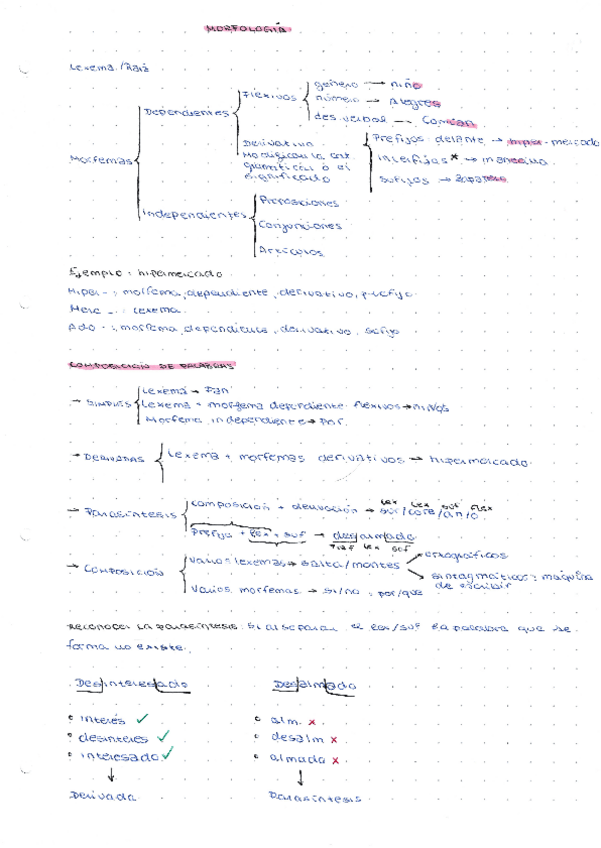 MORFOLOGÍA
Lexema / Raíz
Morfemas
Dependientes
Flexivos
género → niño
número → Alegres
des. verbal → Comían
Derivativo
Modifican la cat.
gramatical o el
significado
Prefijos: delante → hiper-mercado
Interfijos * →
Sufijos → zapatero
Independientes
Preposiciones
Conjunciones
Artículos
Ejemplo: hipermercado
Hiper -: morfema, dependiente, derivativo, prefijo
Merc -: lexema
Ado -: morfema, dependiente, derivativo, sufijo
COMPOSICIÓN DE PALABRAS
→ SIMPLES
Lexema → Pan
Lexema + morfema dependiente flexivos → niños
Morfema independiente → Por
→ DERIVADAS
Lexema + morfemas derivativos → hipermercado
→ Parasíntesis
Composición + derivación → sur/core/an/o
lex lex suf flex
Prefijo + lex + suf → desalmado
Pref lex suf
→ COMPOSICIÓN
Varios lexemas → salta/montes
ortográficos
sintagmáticos: máquina
de escribir
Varios morfemas → si/no, por/que
RECONOCER LA PARASÍNTESIS: Si al separar el lex/suf la palabra que se
forma no existe.
Desinteresado
• interés ✓
• desinteres ✓
• interesado ✓
↓
Derivada
Desalmado
• alm. x
• desalm x
• almada x
↓
Parasíntesis